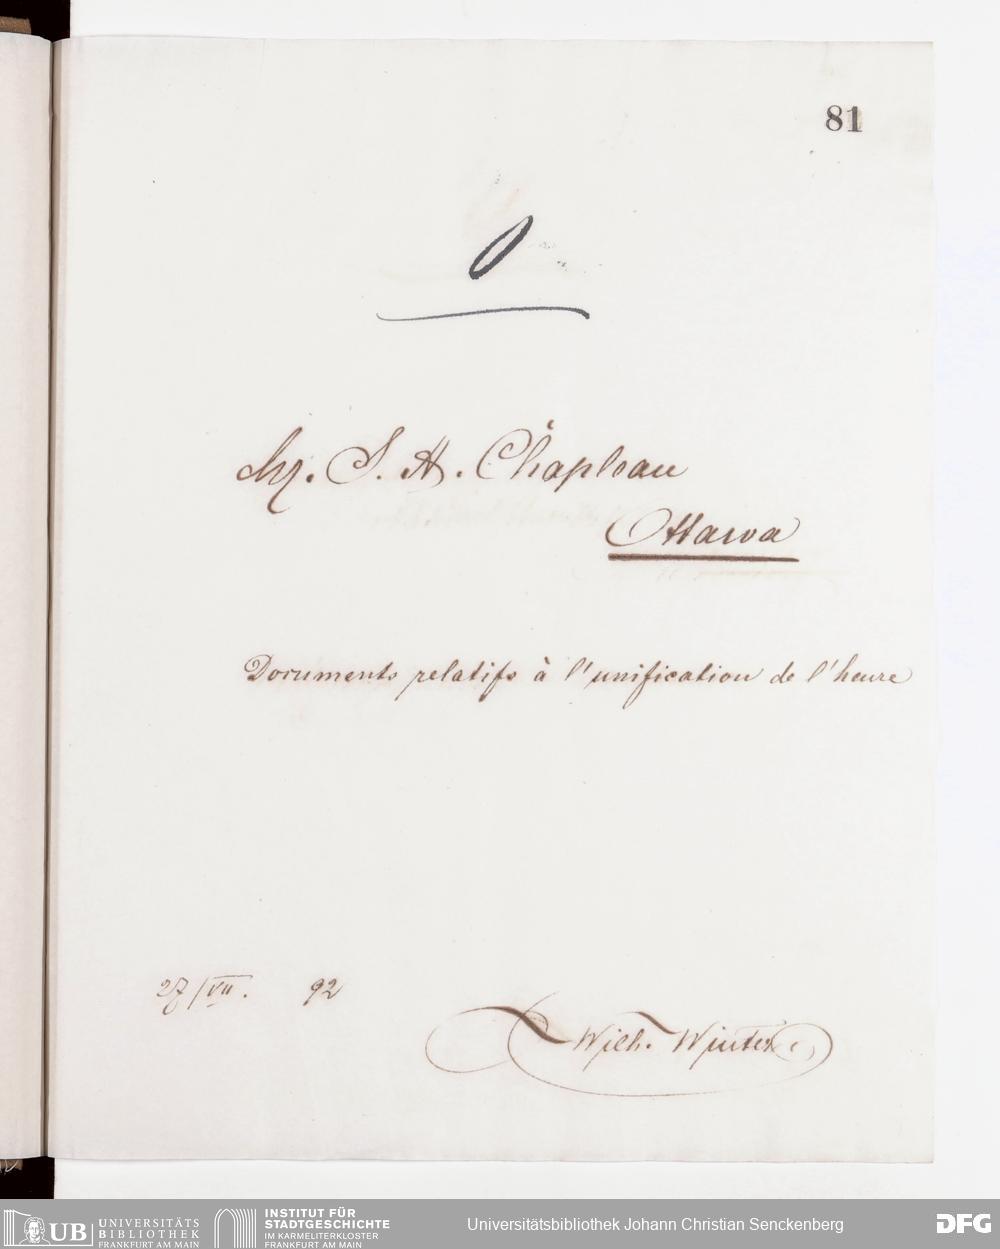 81
0
Mr. S. A. Chapleau
Ottawa
Documents relatifs à l'unification de l'heure
27/VII. 92
Wilh. Winter
UB UNIVERSITÄTS
BIBLIOTHEK
FRANKFURT AM MAIN
INSTITUT FÜR
STADTGESCHICHTE
IM KARMELITERKLOSTER
FRANKFURT AM MAIN
Universitätsbibliothek Johann Christian Senckenberg
DFG